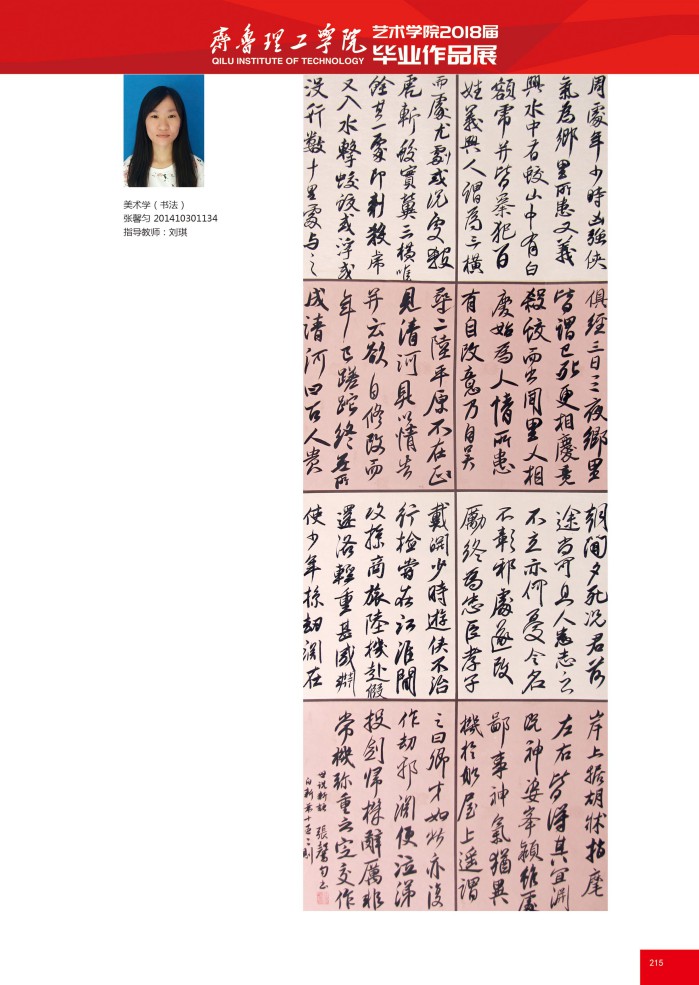 齊魯理工學院
QILU INSTITUTE OF TECHNOLOGY
艺术学院2018届
毕业作品展
美术学（书法）
张馨匀 201410301134
指导教师：刘琪
周處年少時凶強俠
氣為鄉里所患又義
興水中有蛟山中有白
額虎并皆暴犯百
姓義興人謂為三橫
而處尤劇或說處殺
虎斬蛟實冀三橫唯
餘其一處即刺殺虎
又入水擊蛟蛟或浮或
沒行數十里處與之
俱經三日三夜鄉里
皆謂已死更相慶竟
殺蛟而出聞里人相
慶始為人情所患
有自改意乃自吳
尋二陸平原不在正
見清河具以情告
并云欲自修改而
年已蹉跎終無所
成清河曰古人貴
朝聞夕死況君前
途尚可且人患志之
不立亦何憂令名
不彰邪處遂改
勵終為忠臣孝子
戴淵少時遊俠不治
行檢嘗在江淮間
攻掠商旅陸機赴假
還洛輜重甚盛淵
使少年掠劫淵在
岸上據胡牀指麾
左右皆得其宜淵
既神姿峯穎雖處
鄙事神氣猶異
機於船屋上遙謂
之曰卿才如此亦復
作劫邪淵便泣涕
投劍歸機辭厲非
常機彌重之定交作
世說新語
自新第十五二則
張馨勻書
215